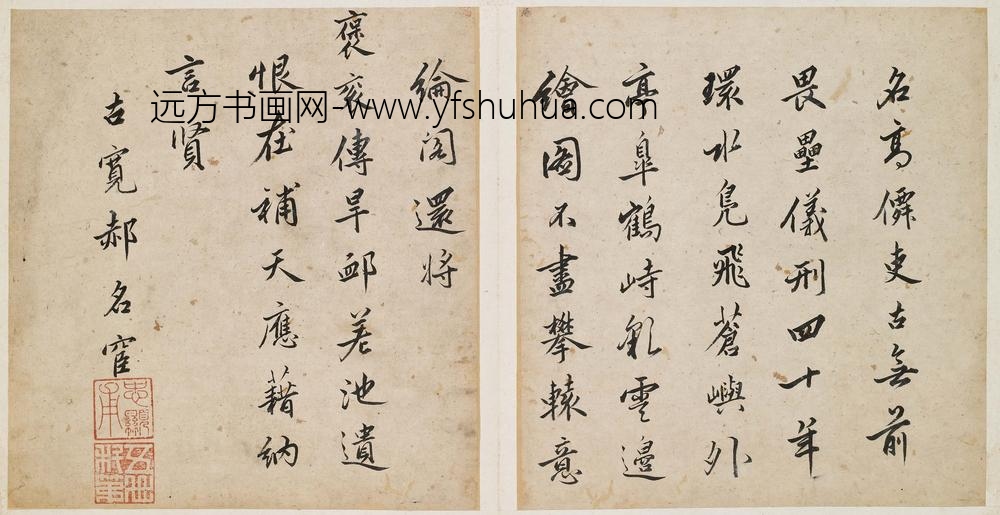 名高僊吏古無前
畏壘儀刑四十年
環水鳧飛蒼嶼外
亭臯鶴峙彩雲邊
繪圖不盡攀轅意
綸閣還將
褒袞傳早卹差池遺
恨在補天應藉納
言賢
古寬郝名宦
远方书画网-www.yfshuhua.com